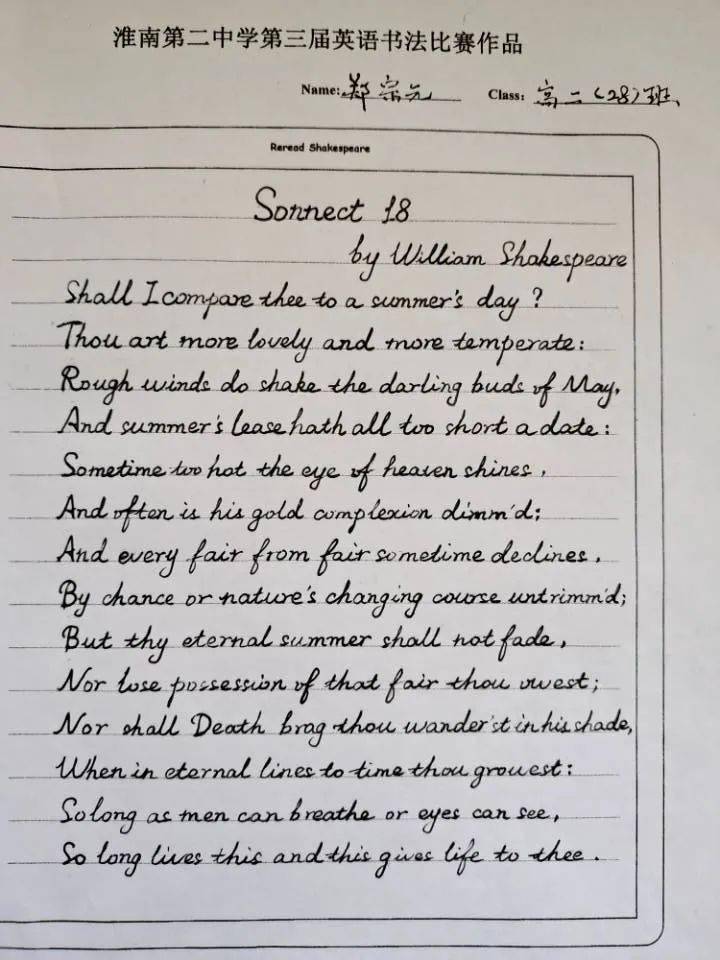 淮南第二中学第三届英语书法比赛作品
Name: 郑宗元 Class: 高二(28)班
Reread Shakespeare
Sonnect 18
by William Shakespeare
Shall I compare thee to a summer's day ?
Thou art more lovely and more temperate:
Rough winds do shake the darling buds of May,
And summer's lease hath all too short a date:
Sometime too hot the eye of heaven shines ,
And often is his gold complexion dimm'd;
And every fair from fair sometime declines ,
By chance or nature's changing course untrimm'd;
But thy eternal summer shall not fade ,
Nor lose possession of that fair thou owest;
Nor shall Death brag thou wander'st in his shade,
When in eternal lines to time thou growest:
So long as men can breathe or eyes can see,
So long lives this and this gives life to thee .